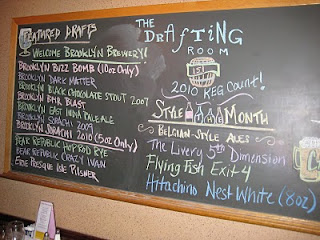 Featured Drafts
Welcome Brooklyn Brewery!
Brooklyn Bizz Bomb (10oz Only)
Brooklyn Dark Matter
Brooklyn Black Chocolate Stout 2007
Brooklyn BLAST
Brooklyn East India Pale Ale
Brooklyn Sorachi 2009
Brooklyn Sorachi 2010 (5oz Only)
Bear Republic Hop Rod Rye
Bear Republic Crazy Ivan
Erie Presque Isle Pilsner
The
Drafting
Room
151
2010 Keg Count!
Style Of The Month
Belgian-Style Ales
The Livery 5th Dimension
Flying Fish Exit 4
Hitachino Nest White (8oz)